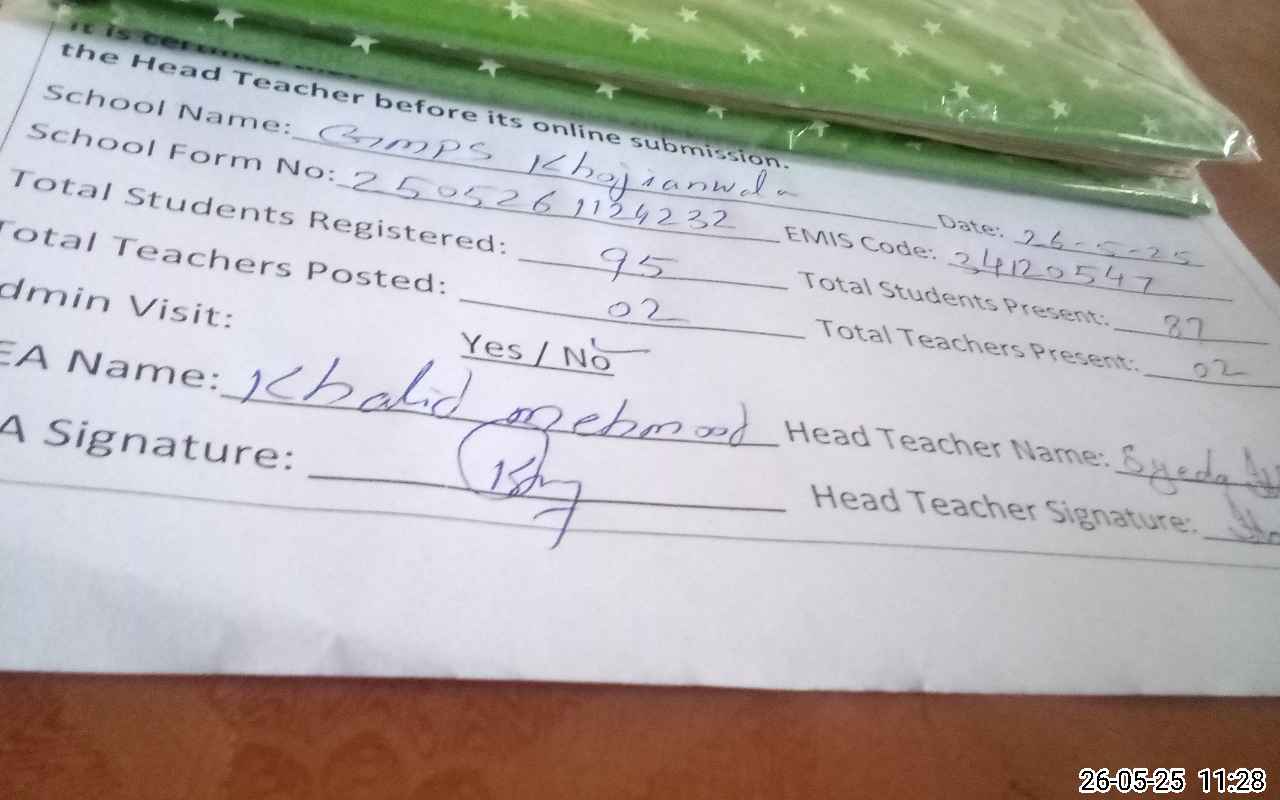 the Head Teacher before its online submission.
School Name: GMPS Khojianwala Date: 26-5-25
School Form No: 2505261124232 EMIS Code: 34120547
Total Students Registered: 95 Total Students Present: 87
Total Teachers Posted: 02 Total Teachers Present: 02
dmin Visit: Yes / No
EA Name: Khalid mehmood Head Teacher Name: Syeda
A Signature: Head Teacher Signature:
26-05-25 11:28